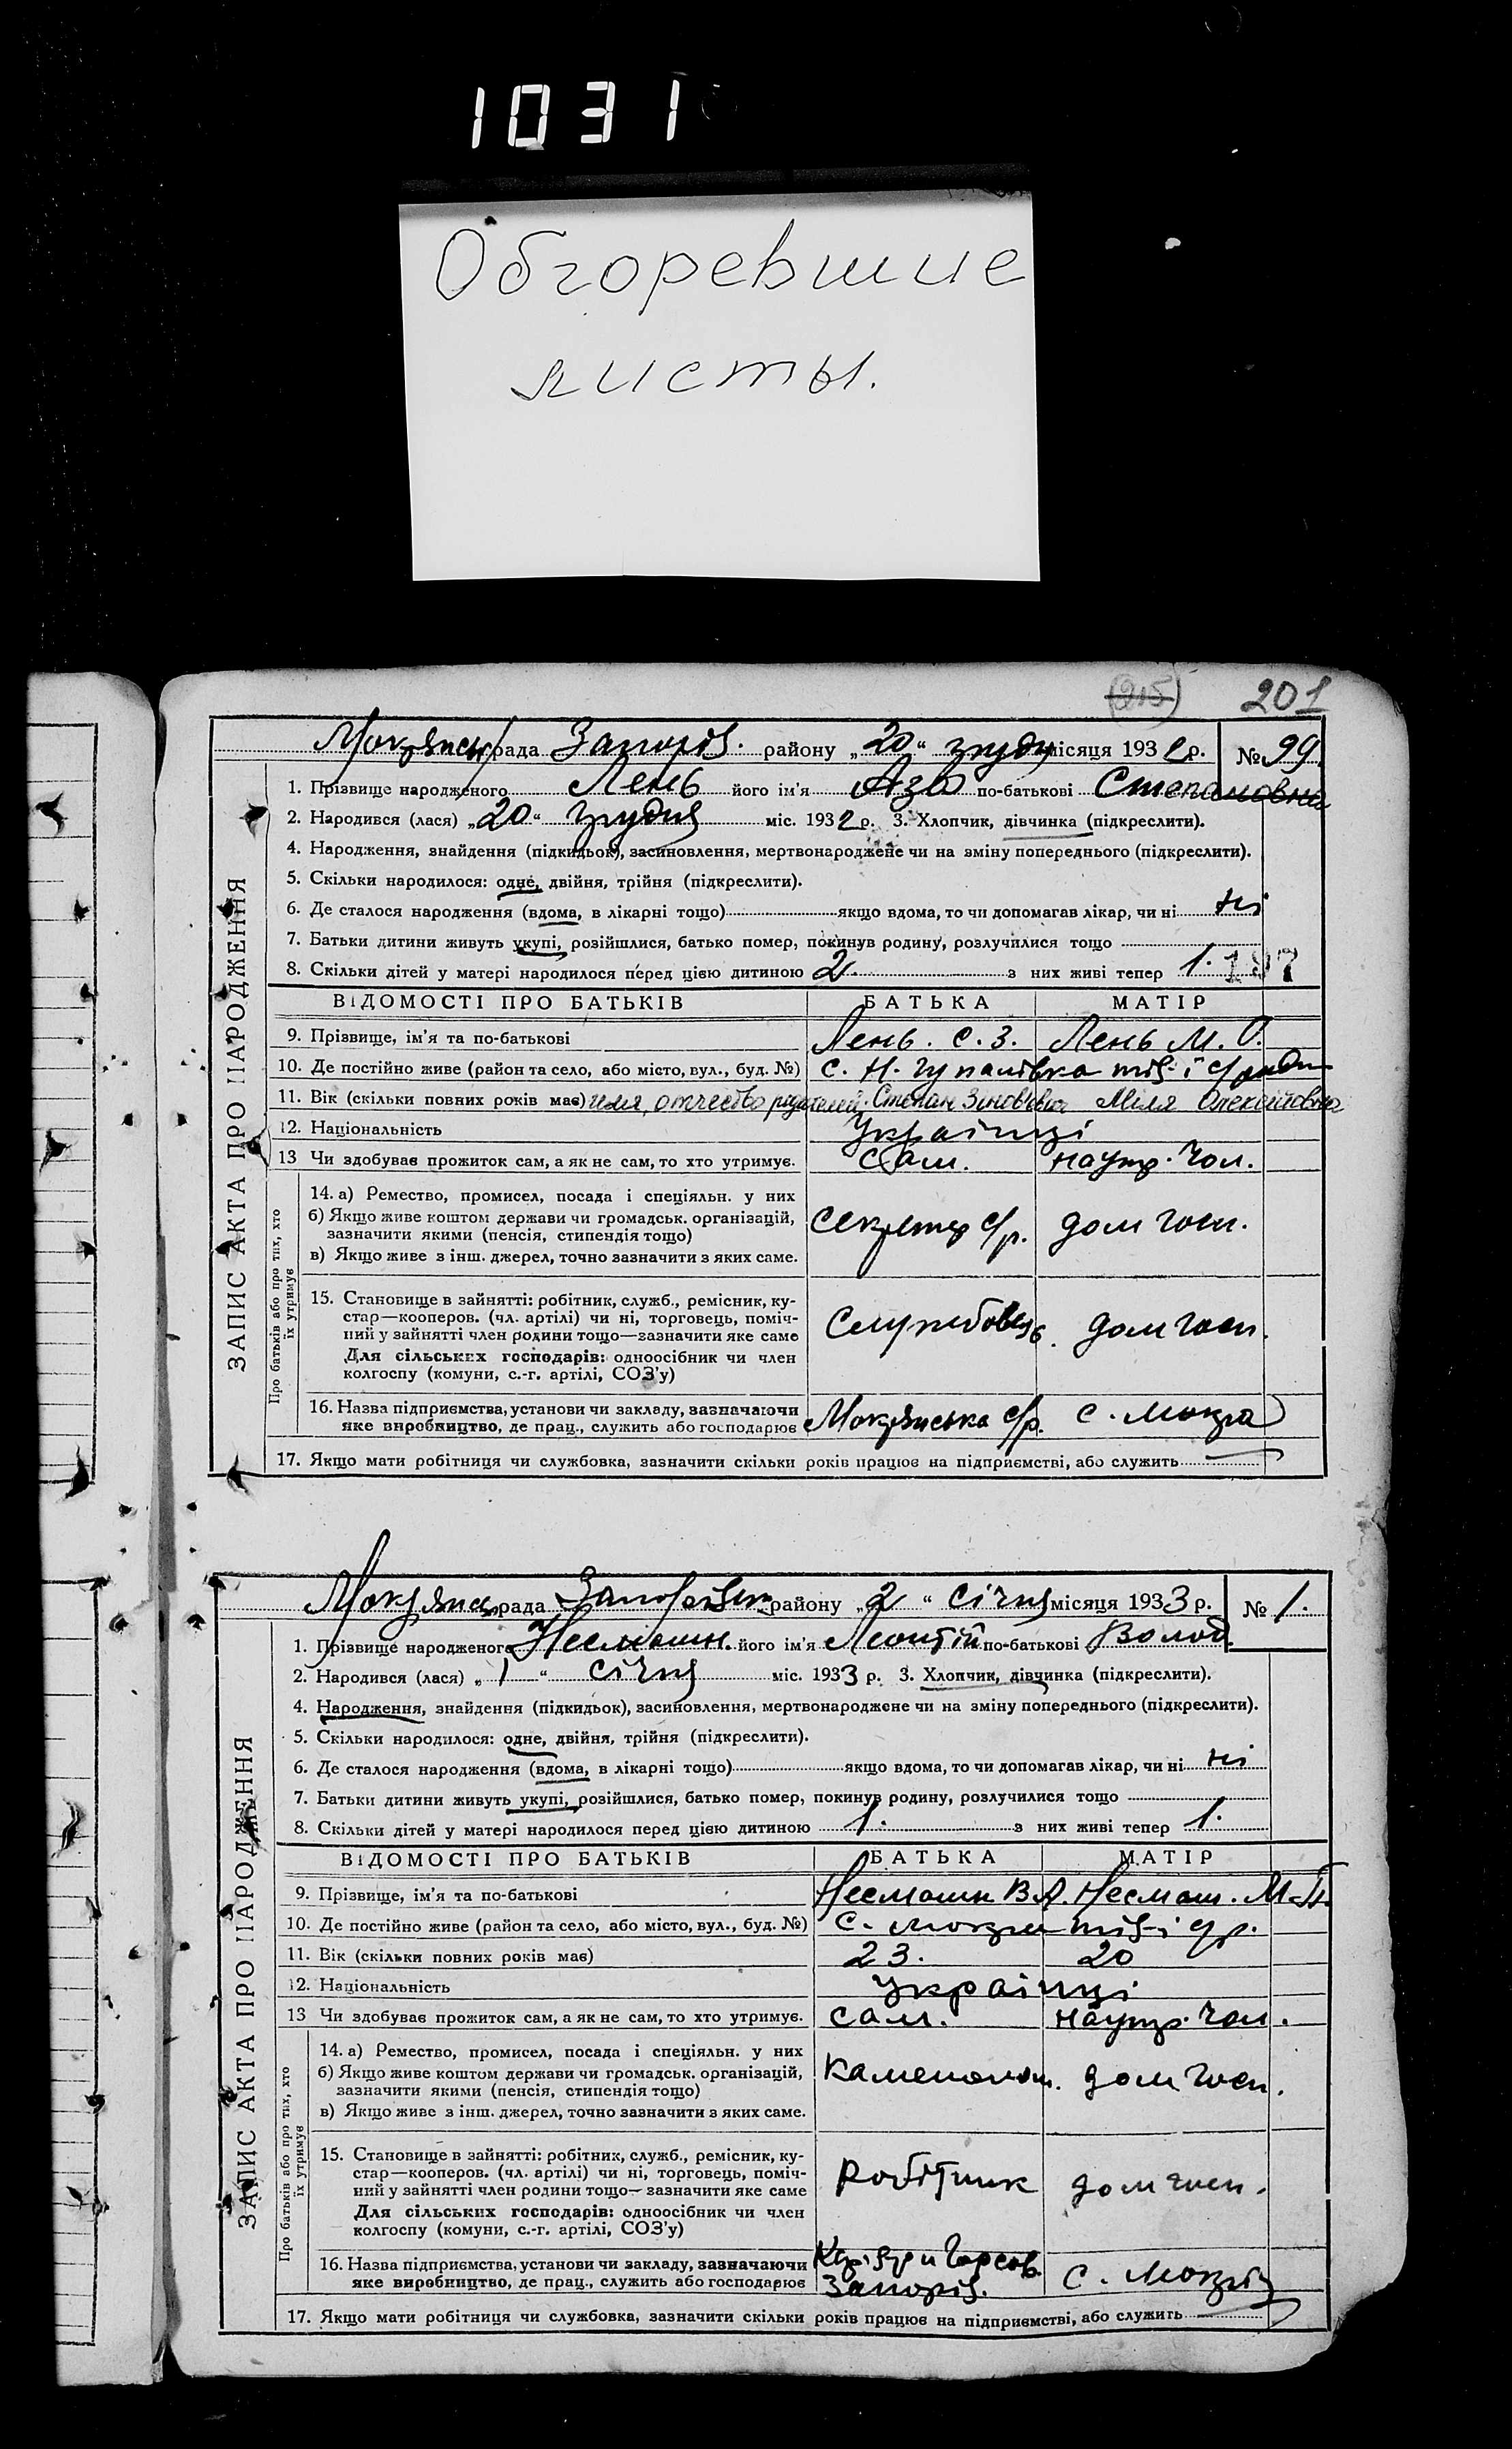 1031
Обгоревшие
листы.
(215) 201
Мокрянськ рада Запоріз. району „20“ грудня місяця 1932 р. № 99
1. Прізвище народженого Лень його ім'я Аза по-батькові Степановна
2. Народився (лася) „20“ грудня міс. 1932 р. 3. Хлопчик, дівчинка (підкреслити).
4. Народження, знайдення (підкидьок), засиновлення, мертвонароджене чи на зміну попереднього (підкреслити).
5. Скільки народилося: одне, двійня, трійня (підкреслити).
6. Де сталося народження (вдома, в лікарні тощо) якщо вдома, то чи допомагав лікар, чи ні ні
7. Батьки дитини живуть укупі, розійшлися, батько помер, покинув родину, розлучилися тощо
8. Скільки дітей у матері народилося перед цією дитиною 2. з них живі тепер 1. 197
ВІДОМОСТІ ПРО БАТЬКІВ БАТЬКА МАТІР
9. Прізвище, ім'я та по-батькові Лень. С. З. Лень М. О.
10. Де постійно живе (район та село, або місто, вул., буд. №) с. Н. Гупалівка тіз-ї с/ради
11. Вік (скільки повних років має) имя, отчество родителей. Степан Зіновьевич Міля Олексіїовна
12. Національність Українці
13 Чи здобуває прожиток сам, а як не сам, то хто утримує. Сам. на утр. чол.
14. а) Ремество, промисел, посада і спеціяльн. у них
б) Якщо живе коштом держави чи громадськ. організацій, Секретар с/р. дом госп.
зазначити якими (пенсія, стипендія тощо)
в) Якщо живе з інш. джерел, точно зазначити з яких саме.
15. Становище в зайнятті: робітник, служб., ремісник, ку-
стар—кооперов. (чл. артілі) чи ні, торговець, поміч- Службовець. дом госп.
ний у зайнятті член родини тощо—зазначити яке саме
Для сільських господарів: одноосібник чи член
колгоспу (комуни, с.-г. артілі, СОЗ'у)
16. Назва підприємства, установи чи закладу, зазначаючи Мокрянська с/р. с. Мокра
яке виробництво, де прац., служить або господарює
17. Якщо мати робітниця чи службовка, зазначити скільки років працює на підприємстві, або служить
ЗАПИС АКТА ПРО НАРОДЖЕННЯ
Про батьків або про тих, хто
їх утримує
Мокрянськ рада Запорізьк району „2“ січня місяця 1933 р. № 1.
1. Прізвище народженого Несмашн. його ім'я Леонтій по-батькові Волод.
2. Народився (лася) „1“ січня міс. 1933 р. 3. Хлопчик, дівчинка (підкреслити).
4. Народження, знайдення (підкидьок), засиновлення, мертвонароджене чи на зміну попереднього (підкреслити).
5. Скільки народилося: одне, двійня, трійня (підкреслити).
6. Де сталося народження (вдома, в лікарні тощо) якщо вдома, то чи допомагав лікар, чи ні ні
7. Батьки дитини живуть укупі, розійшлися, батько помер, покинув родину, розлучилися тощо
8. Скільки дітей у матері народилося перед цією дитиною 1. з них живі тепер 1.
ВІДОМОСТІ ПРО БАТЬКІВ БАТЬКА МАТІР
9. Прізвище, ім'я та по-батькові Несмашн В. А. Несмаш. М. П.
10. Де постійно живе (район та село, або місто, вул., буд. №) с. Мокра тіз-ї с/р.
11. Вік (скільки повних років має) 23. 20
12. Національність Українці
13 Чи здобуває прожиток сам, а як не сам, то хто утримує. Сам. на утр. чол.
14. а) Ремество, промисел, посада і спеціяльн. у них
б) Якщо живе коштом держави чи громадськ. організацій, каменолом. дом госп.
зазначити якими (пенсія, стипендія тощо)
в) Якщо живе з інш. джерел, точно зазначити з яких саме.
15. Становище в зайнятті: робітник, служб., ремісник, ку-
стар—кооперов. (чл. артілі) чи ні, торговець, поміч- Робітник дом госп.
ний у зайнятті член родини тощо—зазначити яке саме
Для сільських господарів: одноосібник чи член
колгоспу (комуни, с.-г. артілі, СОЗ'у)
16. Назва підприємства, установи чи закладу, зазначаючи
яке виробництво, де прац., служить або господарює Запоріз. с. Мокрій
17. Якщо мати робітниця чи службовка, зазначити скільки років працює на підприємстві, або служить
ЗАПИС АКТА ПРО НАРОДЖЕННЯ
Про батьків або про тих, хто
їх утримує